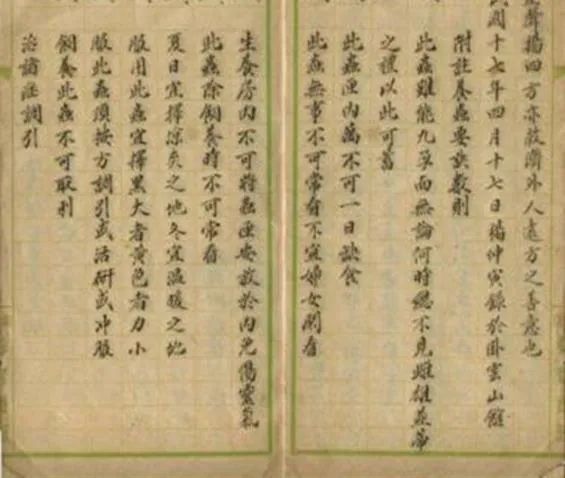 聲揚四方亦救濟外人遠方之善意也
民國十七年四月十七日楊仲寅錄於卧雲山館
附註養蟲要訣數則
此蟲雖能九孕而無論何時總不見雌雄並蒂
之禮以此可畜
此蟲匣內萬不可一日缺食
此蟲無事不可常看不宜婦女閙看
生養房內不可將蟲匣安放於內免傷靈氣
此蟲除飼養時不可常看
夏日宜擇凉爽之地冬宜溫暖之地
服用此蟲宜擇黑大者黃色者力小
服此蟲須按方調引或活研或冲服
飼養此蟲不可取利
治諸症調引